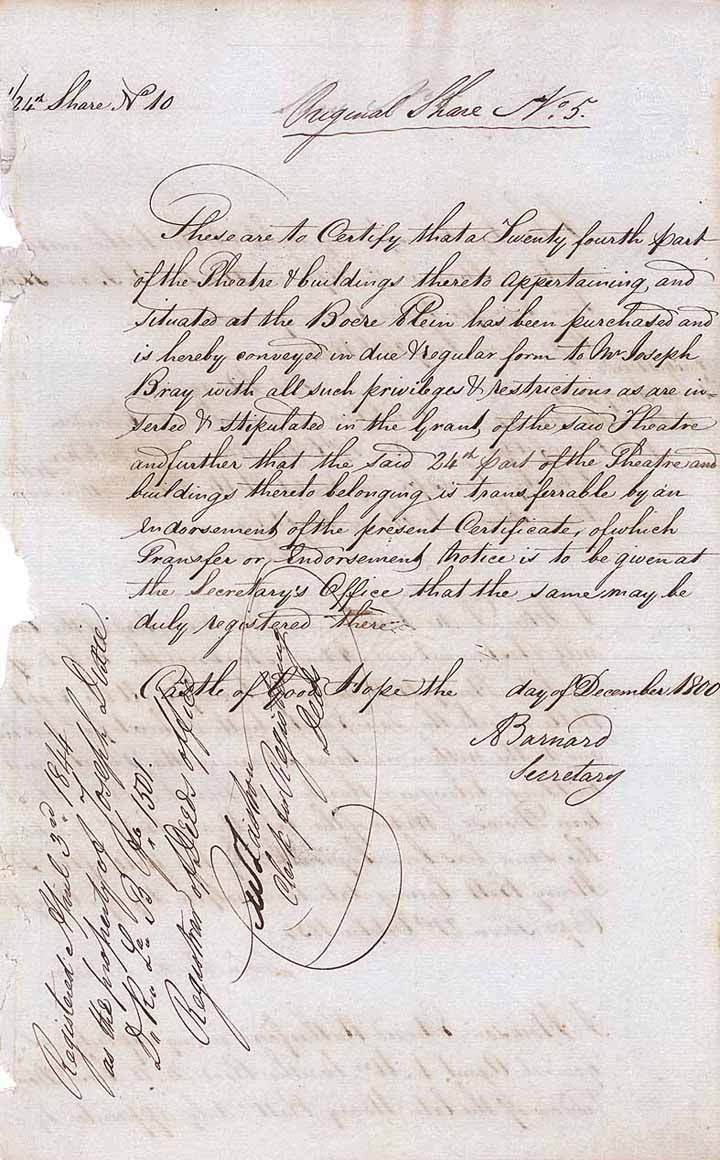 1/24th Share No 10
Original Share No. 5.
These are to Certify that a Twenty fourth part
of the Theatre & buildings thereto appertaining, and
situated at the Boere Plein has been purchased and
is hereby conveyed in due & regular form to Mr. Joseph
Bray with all such privileges & restrictions as are in-
serted & stipulated in the Grant of the said Theatre
and further that the said 24th part of the Theatre and
buildings thereto belonging is transferrable by an
Indorsement of the present Certificate, of which
Transfer or Indorsement Notice is to be given at
the Secretary's Office that the same may be
duly registered there
Castle of Good Hope the day of December 1800
A Barnard
Secretary
Registered April 3rd 1844
as the property of Joseph
1501.
Registrar of Deeds office
Clerk for Registering
Deeds